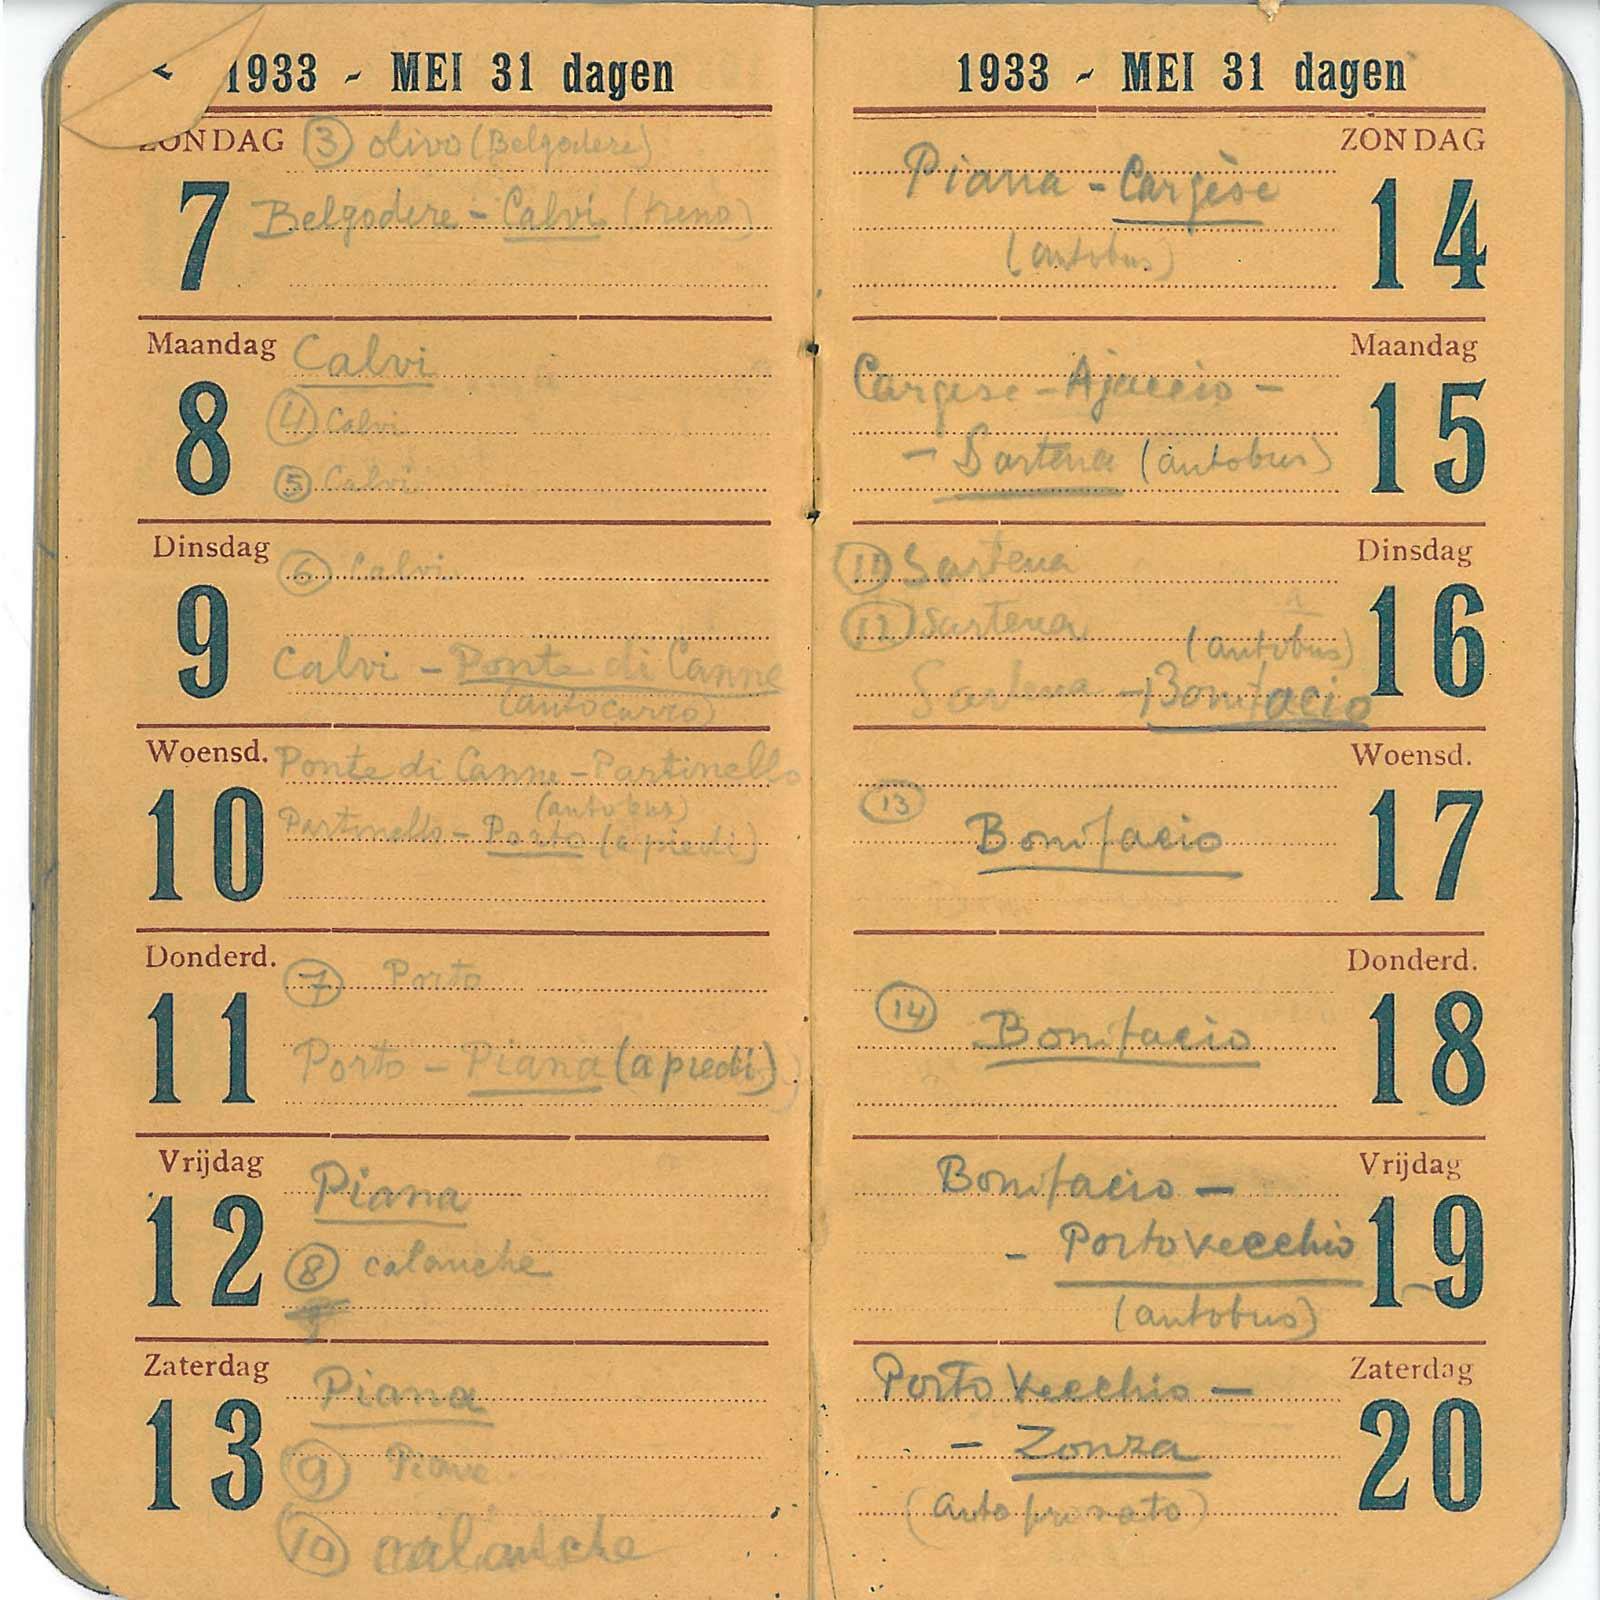 1933 - MEI 31 dagen
ZONDAG
7
③ olivo (Belgodere)
Belgodere - Calvi (treno)
Maandag
8
Calvi
④ Calvi
⑤ Calvi
Dinsdag
9
⑥ Calvi
Calvi - Ponte di Canne
(autocarro)
Woensd.
10
Ponte di Canne - Partinello
(autobus)
Partinello - Porto (a piedi)
Donderd.
11
⑦ Porto
Porto - Piana (a piedi)
Vrijdag
12
Piana
⑧ calanche
Zaterdag
13
Piana
⑨ Piana
⑩ calanche
1933 - MEI 31 dagen
ZONDAG
14
Piana - Cargèse
(autobus)
Maandag
15
Cargese - Ajaccio -
- Sartena (autobus)
Dinsdag
16
⑪ Sartena
⑫ Sartena
(autobus)
Sartena - Bonifacio
Woensd.
17
⑬
Bonifacio
Donderd.
18
⑭
Bonifacio
Vrijdag
19
Bonifacio -
- Porto Vecchio
(autobus)
Zaterdag
20
Porto Vecchio -
- Zonza
(auto privato)